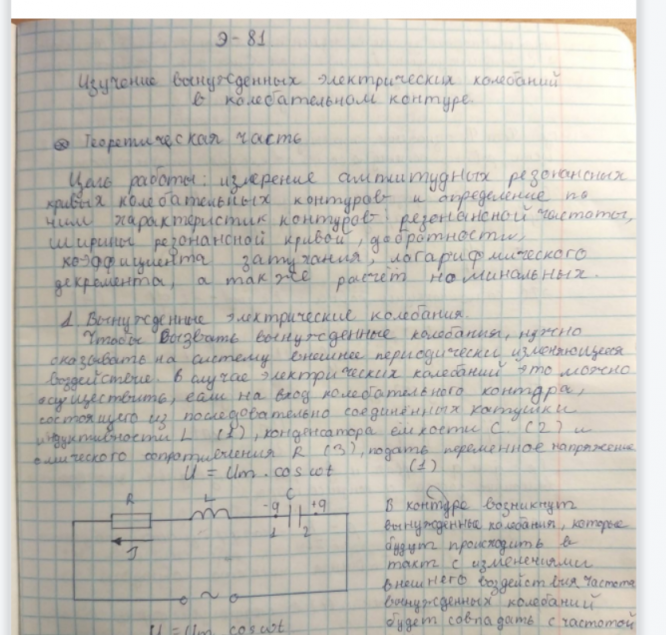 Э-81
Изучение вынужденных электрических колебаний
в колебательном контуре.
Теоретическая часть
Цель работы: измерение амплитудных резонансных
кривых колебательных контуров и определение по
ним характеристик контуров резонансной частоты,
ширины резонансной кривой, добротности,
коэффициента затухания, логарифмического
декремента, а также расчёт номинальных.
1. Вынужденные электрические колебания.
Чтобы вызвать вынужденные колебания, нужно
оказывать на систему внешнее периодически изменяющееся
воздействие. В случае электрических колебаний это можно
осуществить, если на вход колебательного контура,
состоящего из последовательно соединённых катушки
индуктивности L (1), конденсатора ёмкости C (2) и
омического сопротивления R (3), подать переменное напряжение
U = Um · cos ωt (1)
R L C
-q +q
1 2
J
~
U = Um cos ωt
В контуре возникнут
вынужденные колебания, которые
будут происходить в
такт с изменениями
внешнего воздействия частота
вынужденных колебаний
будет совпадать с частотой